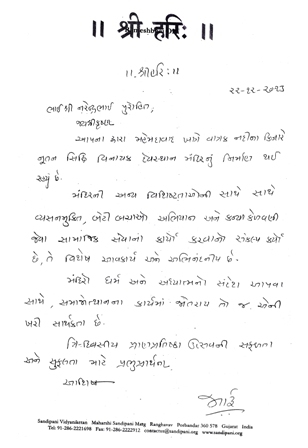 ॥ श्री हरि: ॥
॥ શ્રીહરિ: ॥
૨૨-૧૨-૨૦૧૩
ભાઈશ્રી નરેન્દ્રભાઈ પુરોહિત,
જયશ્રીકૃષ્ણ
આપના દ્વારા મહેમદાવાદ ખાતે વાત્રક નદીના કિનારે
નૂતન સિદ્ધિ વિનાયક દેવસ્થાન મંદિરનું નિર્માણ થઈ
રહ્યું છે.
મંદિરની અન્ય વિશિષ્ટતાઓની સાથે સાથે
વ્યસનમુક્તિ, બેટી બચાઓ અભિયાન અને કન્યા કેળવણી
જેવા સામાજિક સેવાના કાર્યો કરવાનો સંકલ્પ કર્યો
છે, તે વિશેષ આવકાર્ય અને અભિનંદનીય છે.
મંદિરો ધર્મ અને અધ્યાત્મનો સંદેશ આપવા
સાથે, સમાજોત્થાનના કાર્યમાં જોતરાય તો જ એની
ખરી સાર્થકતા છે.
ત્રિ-દિવસીય પ્રાણપ્રતિષ્ઠા ઉત્સવની સફળતા
અને સુફળતા માટે પ્રભુપ્રાર્થના.
આશિષ
Sandipani Vidyaniketan Maharshi Sandipani Marg Ranghavav Porbandar 360 578 Gujarat India
Tel: 91-286-2221698 Fax: 91-286-2222912 contactus@sandipani.org www.sandipani.org